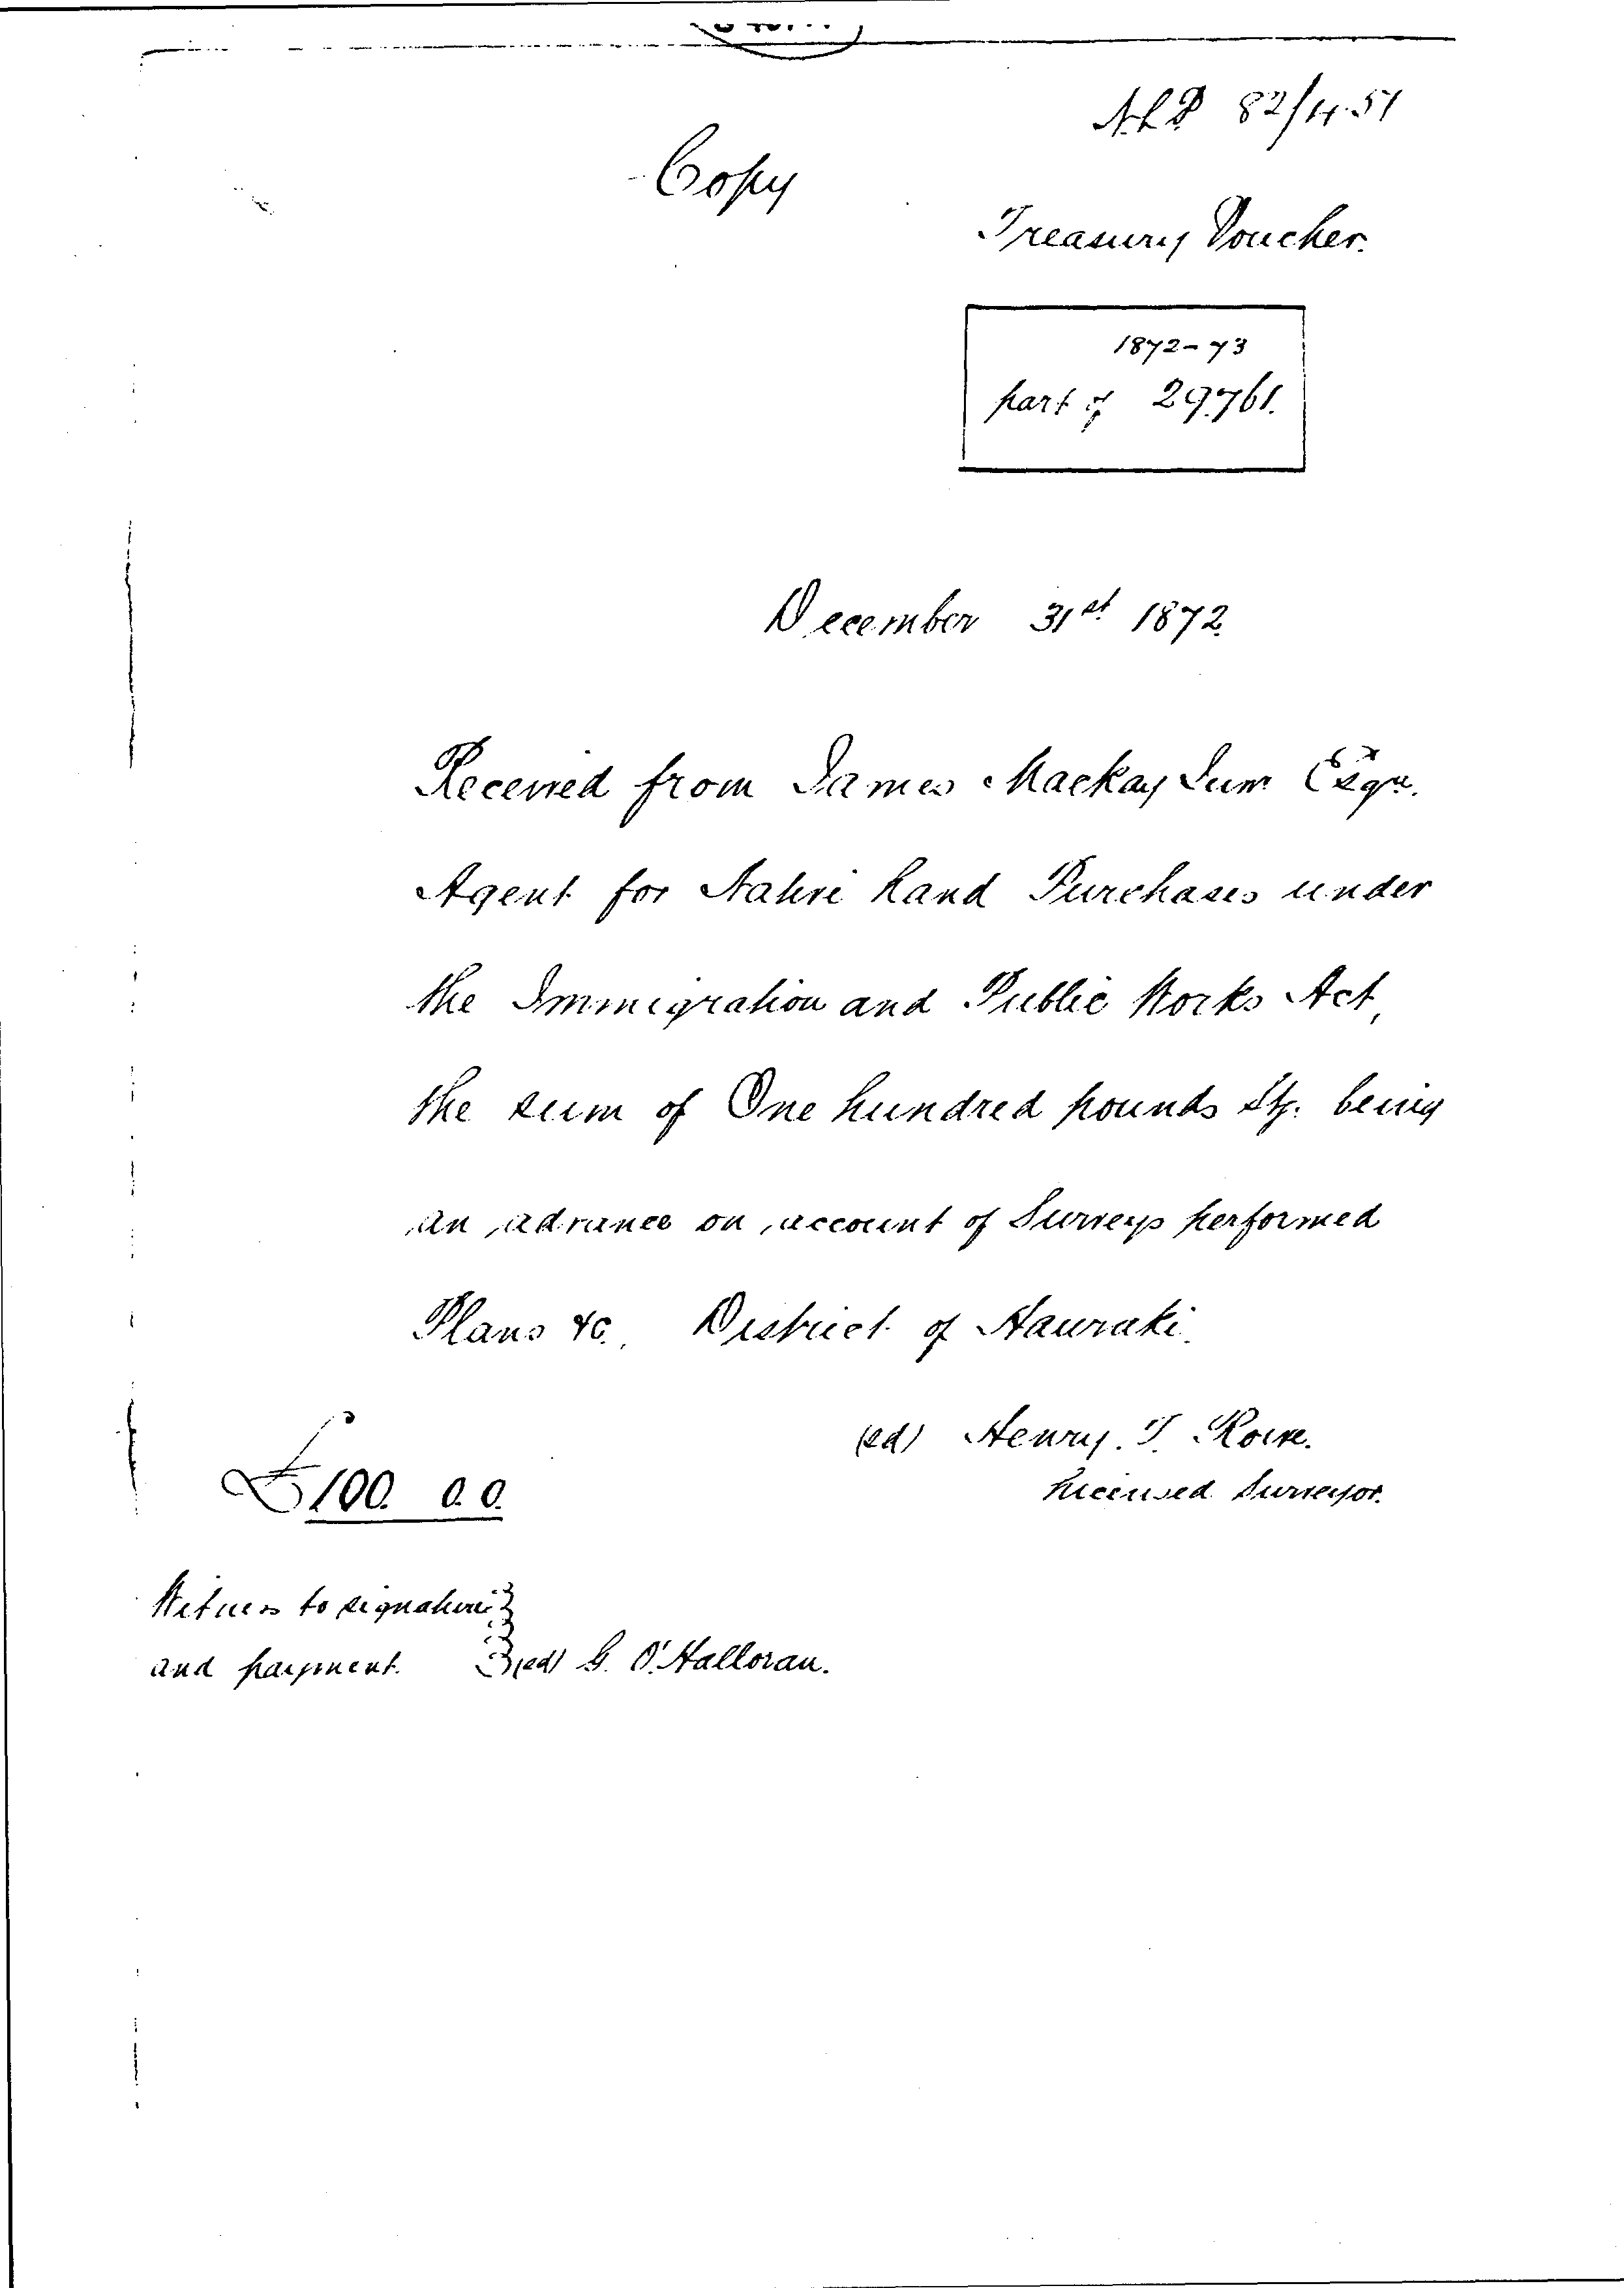 N.L.P 82/4.51
Copy
Treasury Voucher.
1872-73
part of 29.761.
December 31st 1872
Received from James Mackay Junr Esqr.
Agent for Native Land Purchases under
the Immigration and Public Works Act,
the sum of One hundred pounds Stg. being
an advance on account of Surveys performed
Plans &c., District of Hauraki.
(sd) Henry. T. Rowe.
Licensed Surveyor.
£100. 0. 0.
Witness to signature
and payment. (sd) G. O'Halloran.